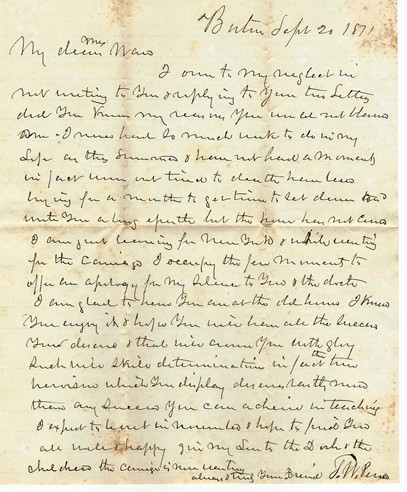 Boston Sept 20 1871
My dear Mrs Ward
I own to my neglect in
not writing to you & replying to your two Letters
did you know my reasons you would not blame
me. I never had so much work to do in my
Life as this Summer & have not had a moment
in fact worn out tired to death have been
trying for a month to get time to set down and
write you a long epistle but the hour has not come
I am just leaving for New York & while waiting
for the Carriage I occupy the few moments to
offer an apology for my Silence to you & the doctr
I am glad to hear you are at the old home I know
you enjoy it & hope you will have all the Success
you deserve & that will crown you with glory
Such skill determination in fact the true
heroism which you display deserves vastly more
than any Success you can achieve in teaching
I expect to be out in November & hope to find you
all well & happy give my Love to the Doctr & the
children the carriage is now waiting
always truly your Friend T. W.